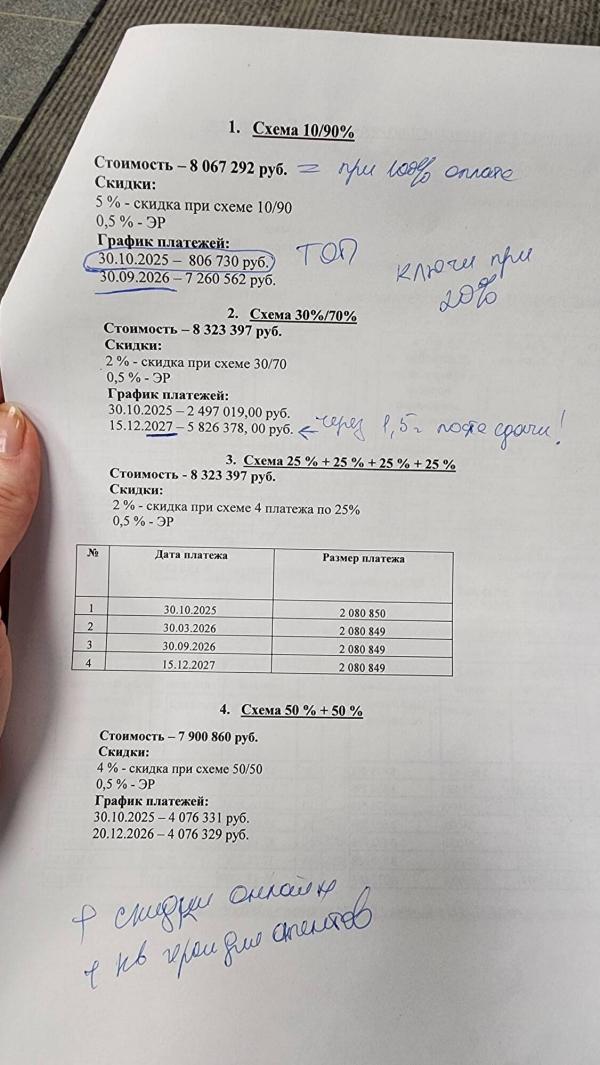 1. Схема 10/90%
Стоимость – 8 067 292 руб. = при 100% оплате
Скидки:
5 % - скидка при схеме 10/90
0,5 % - ЭР
График платежей:
30.10.2025 – 806 730 руб. ТОП
30.09.2026 – 7 260 562 руб.
ключи при
20%
2. Схема 30%/70%
Стоимость – 8 323 397 руб.
Скидки:
2 % - скидка при схеме 30/70
0,5 % - ЭР
График платежей:
30.10.2025 – 2 497 019,00 руб.
15.12.2027 – 5 826 378, 00 руб. ← через 1,5 г после сдачи!
3. Схема 25 % + 25 % + 25 % + 25 %
Стоимость - 8 323 397 руб.
Скидки:
2 % - скидка при схеме 4 платежа по 25%
0,5 % - ЭР
№ Дата платежа Размер платежа
1 30.10.2025 2 080 850
2 30.03.2026 2 080 849
3 30.09.2026 2 080 849
4 15.12.2027 2 080 849
4. Схема 50 % + 50 %
Стоимость – 7 900 860 руб.
Скидки:
4 % - скидка при схеме 50/50
0,5 % - ЭР
График платежей:
30.10.2025 – 4 076 331 руб.
20.12.2026 – 4 076 329 руб.
+ скидки онлайн
+ кв